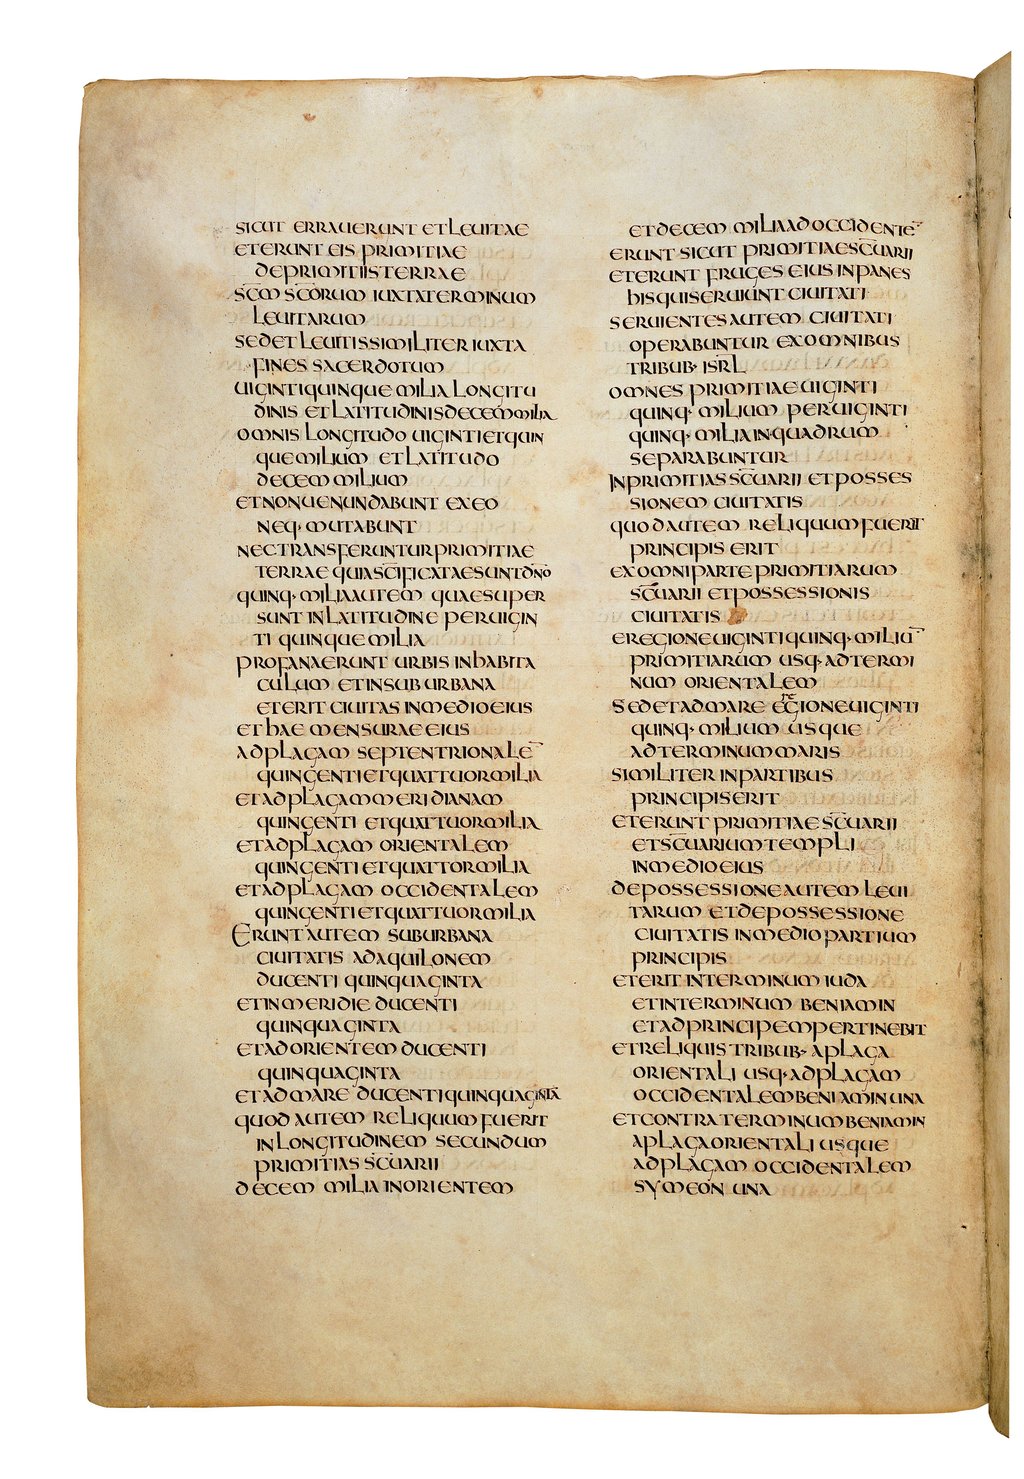 SICUT ERRAUERUNT ET LEUITAE
ET ERUNT EIS PRIMITIAE
DE PRIMITIIS TERRAE
SCM SCORUM IUXTA TERMINUM
LEUITARUM
SED ET LEUITIS SIMILITER IUXTA
FINES SACERDOTUM
UIGINTI QUINQUE MILIA LONGITU
DINIS ET LATITUDINIS DECEM MILIA
OMNIS LONGITUDO UIGINTI ET QUIN
QUE MILIUM ET LATITUDO
DECEM MILIUM
ET NON UENUNDABUNT EX EO
NEQ· MUTABUNT
NEC TRANSFERUNTUR PRIMITIAE
TERRAE QUIA SCIFICATAE SUNT DNO
QUINQ· MILIA AUTEM QUAE SUPER
SUNT IN LATITUDINE PER UIGIN
TI QUINQUE MILIA
PROFANA ERUNT URBIS IN HABITA
CULUM ET IN SUBURBANA
ET ERIT CIUITAS IN MEDIO EIUS
ET HAE MENSURAE EIUS
AD PLAGAM SEPTENTRIONALE¯
QUINGENTI ET QUATTUOR MILIA
ET AD PLAGAM MERIDIANAM
QUINGENTI ET QUATTUOR MILIA
ET AD PLAGAM ORIENTALEM
QUINGENTI ET QUATTOR MILIA
ET AD PLAGAM OCCIDENTALEM
QUINGENTI ET QUATTUOR MILIA
ERUNT AUTEM SUBURBANA
CIUITATIS AD AQUILONEM
DUCENTI QUINQUAGINTA
ET IN MERIDIE DUCENTI
QUINQUAGINTA
ET AD ORIENTEM DUCENTI
QUINQUAGINTA
ET AD MARE DUCENTI QUINQUAGINTA
QUOD AUTEM RELIQUUM FUERIT
IN LONGITUDINEM SECUNDUM
PRIMITIAS SCUARII
DECEM MILIA IN ORIENTEM
ET DECEM MILIA AD OCCIDENTE¯
ERUNT SICUT PRIMITIAE SCUARII
ET ERUNT FRUGES EIUS IN PANES
HIS QUI SERUIUNT CIUITATI
SERUIENTES AUTEM CIUITATI
OPERABUNTUR EX OMNIBUS
TRIBUB· ISRL
OMNES PRIMITIAE UIGINTI
QUINQ· MILIUM PER UIGINTI
QUINQ· MILIA IN QUADRUM
SEPARABUNTUR
IN PRIMITIAS SCUARII ET POSSES
SIONEM CIUITATIS
QUOD AUTEM RELIQUUM FUERIT
PRINCIPIS ERIT
EX OMNI PARTE PRIMITIARUM
SCUARII ET POSSESSIONIS
CIUITATIS
E REGIONE UIGINTI QUINQ· MILIU¯
PRIMITIARUM USQ· AD TERMI
NUM ORIENTALEM
SED ET AD MARE E REGIONE UIGINTI
QUINQ· MILIUM USQUE
AD TERMINUM MARIS
SIMILITER IN PARTIBUS
PRINCIPIS ERIT
ET ERUNT PRIMITIAE SCUARII
ET SCUARIUM TEMPLI
IN MEDIO EIUS
DE POSSESSIONE AUTEM LEUI
TARUM ET DE POSSESSIONE
CIUITATIS IN MEDIO PARTIUM
PRINCIPIS
ET ERIT IN TERMINUM IUDA
ET IN TERMINUM BENIAMIN
ET AD PRINCIPEM PERTINEBIT
ET RELIQUIS TRIBUB· A PLAGA
ORIENTALI USQ· AD PLAGAM
OCCIDENTALEM BENIAMIN UNA
ET CONTRA TERMINUM BENIAMIN
A PLAGA ORIENTALI USQUE
AD PLAGAM OCCIDENTALEM
SYMEON UNA